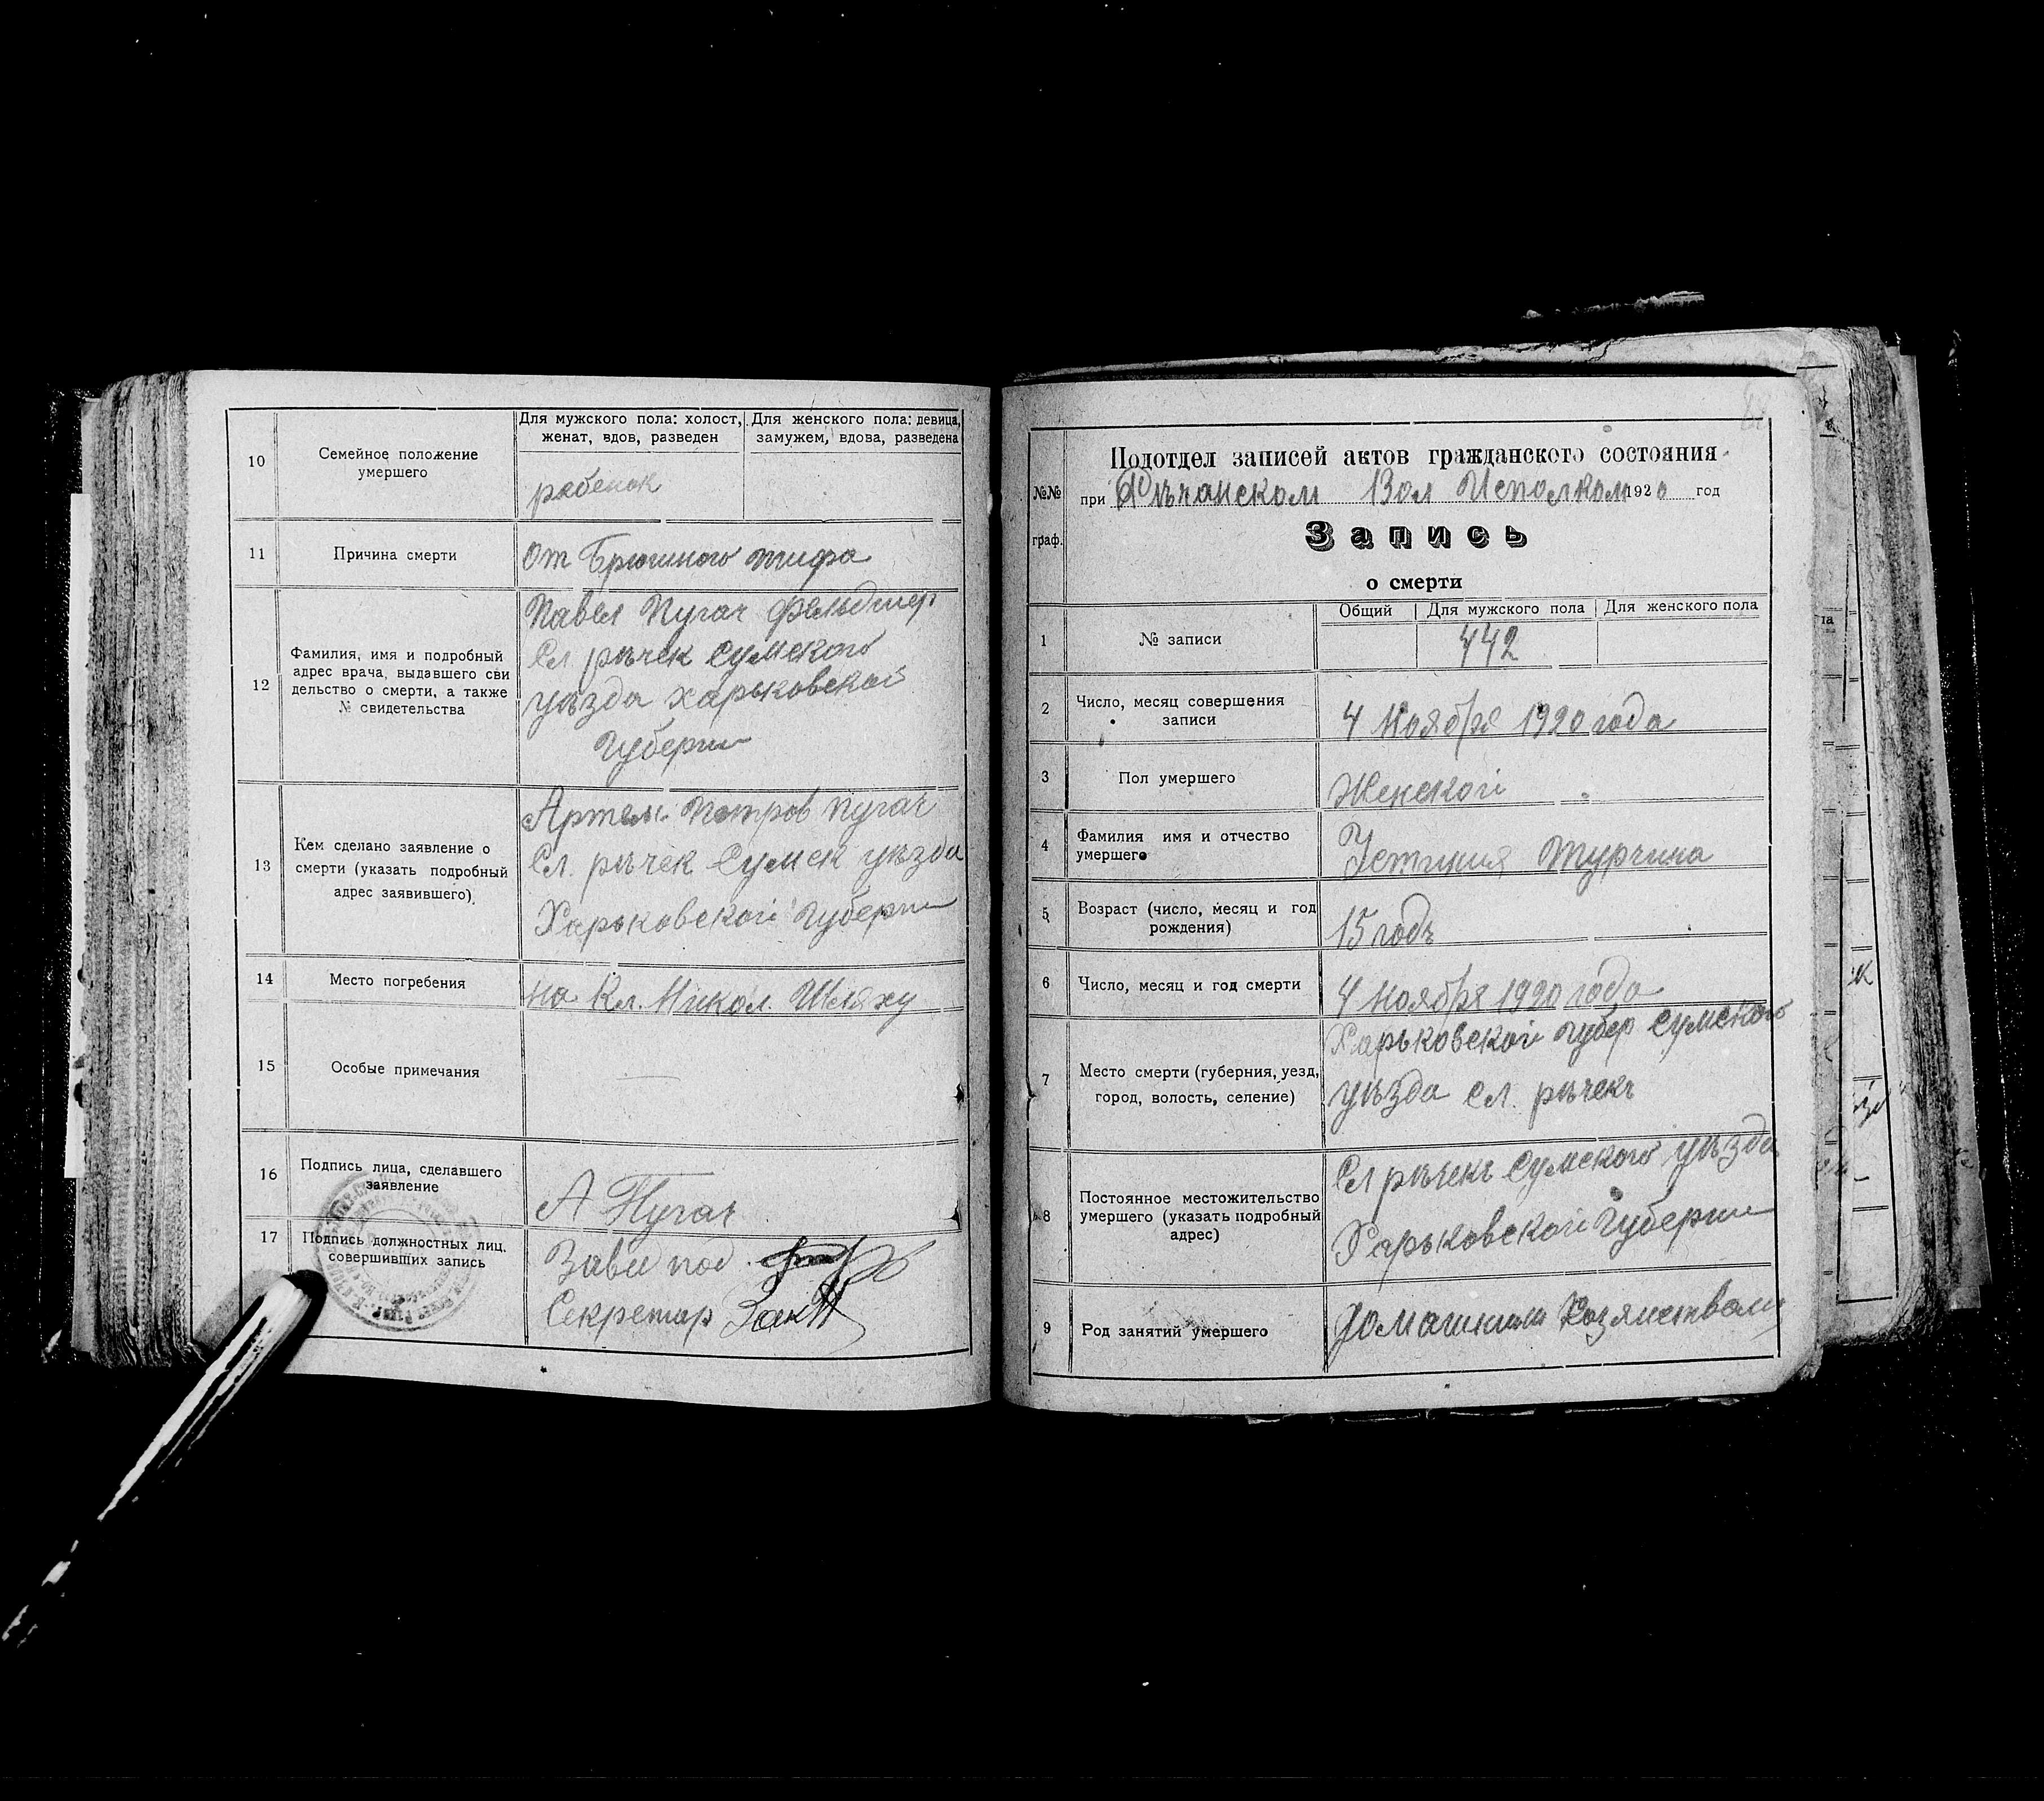 10
Семейное положение
умершего
Для мужского пола: холост,
женат, вдов, разведен
Для женского пола: девица,
замужем, вдова, разведена
рабенок
11
Причина смерти
От Брюшного тифа
12
Фамилия, имя и подробный
адрес врача, выдавшего сви
дельство о смерти, а также
№ свидетельства
Павел Пугач фельдшер
Сл. рѣчек Сумского
уѣзда Харьковской
Губернии
13
Кем сделано заявление о
смерти (указать подробный
адрес заявившего).
Артем Петров Пугач
Сл. рѣчек Сумск уѣзда
Харьковской Губернии
14
Место погребения
На Кл. Никол. Шляху
15
Особые примечания
16
Подпись лица, сделавшего
заявление
А Пугач
17
Подпись должностных лиц,
совершивших запись
Завед под.
Секретар
№№
граф.
Подотдел записей актов гражданского состояния
при Рѣчанском Вол Исполком 1920 год
Запись
о смерти
1
№ записи
Общий
Для мужского пола
Для женского пола
442
2
Число, месяц совершения
записи
4 Ноября 1920 года
3
Пол умершего
Женской
4
Фамилия имя и отчество
умершего
Устиния Турчина
5
Возраст (число, месяц и год
рождения)
15 годъ
6
Число, месяц и год смерти
4 Ноября 1920 года
7
Место смерти (губерния, уезд,
город, волость, селение)
Харьковской Губер Сумского
уѣзда Сл. рѣчекъ
8
Постоянное местожительство
умершего (указать подробный
адрес)
Сл рѣчекъ Сумского уѣзда
Харьковской Губернии
9
Род занятий умершего
Домашним Хозяйством